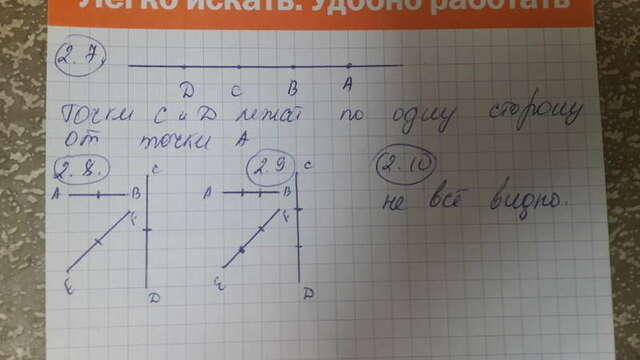 Легко искать. Удобно работать
2.7.
D C B A
Точки C и D лежат по одну сторону
от точки A
2.8. 2.9 2.10
C C
A B A B
не всё видно.
F F
E E
D D